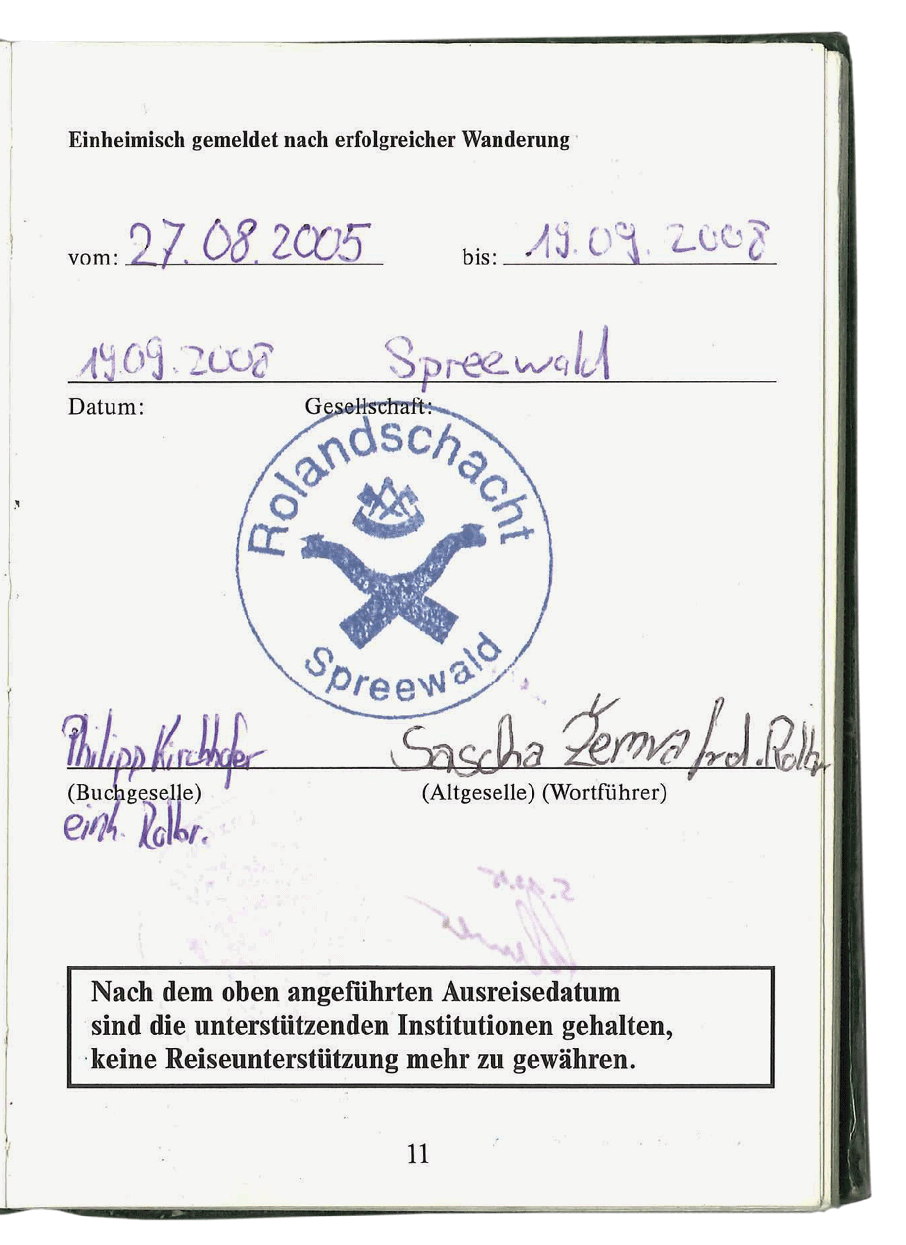 Einheimisch gemeldet nach erfolgreicher Wanderung
vom: 27.08.2005 bis: 19.09.2008
19.09.2008 Spreewald
Datum: Gesellschaft:
Rolandschacht
Spreewald
Philipp Kirchhofer Sascha Žemva frd. Rolbr
(Buchgeselle) (Altgeselle) (Wortführer)
einh. Rolbr.
Nach dem oben angeführten Ausreisedatum
sind die unterstützenden Institutionen gehalten,
keine Reiseunterstützung mehr zu gewähren.
11